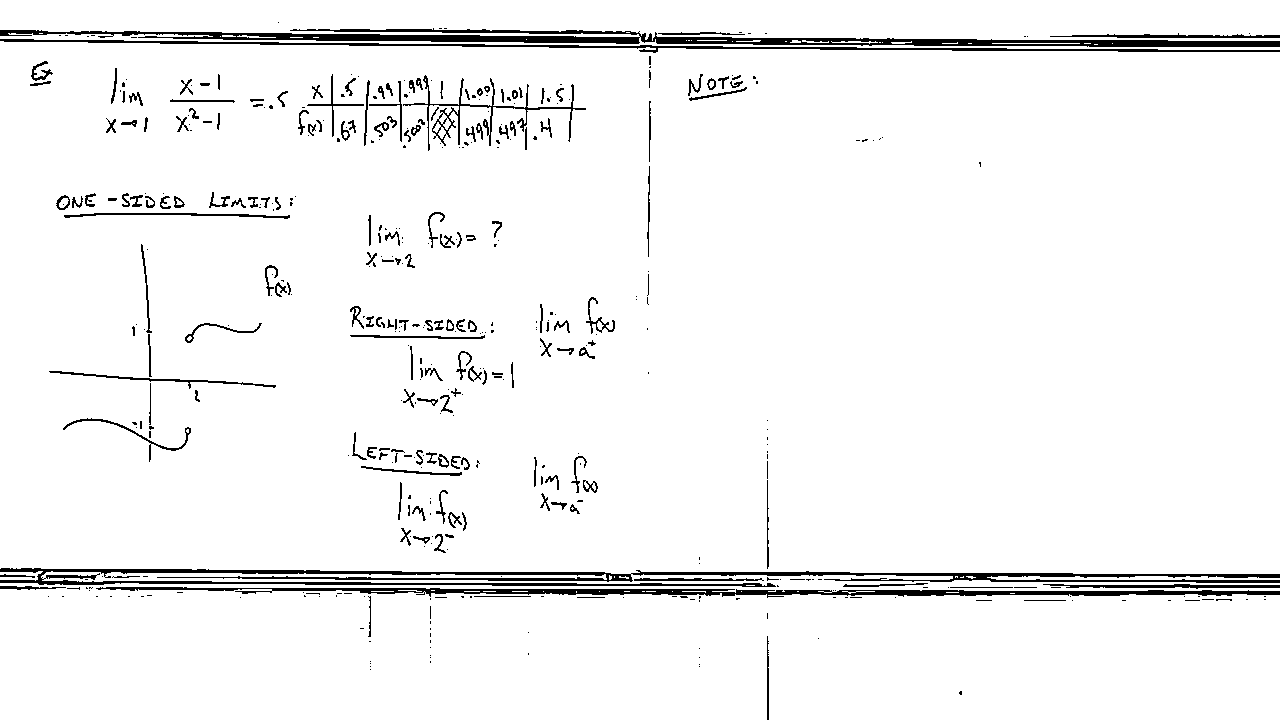 Ex
lim x→1 x-1 / x²-1 = .5
x | .5 | .99 | .999 | 1 | 1.001 | 1.01 | 1.5
f(x) | .67 | .503 | .5003 | | .499 | .497 | .4
ONE-SIDED LIMITS:
lim x→2 f(x) = ?
f(x)
1
2
-1
RIGHT-SIDED: lim x→a⁺ f(x)
lim x→2⁺ f(x) = 1
LEFT-SIDED: lim x→a⁻ f(x)
lim x→2⁻ f(x)
NOTE: